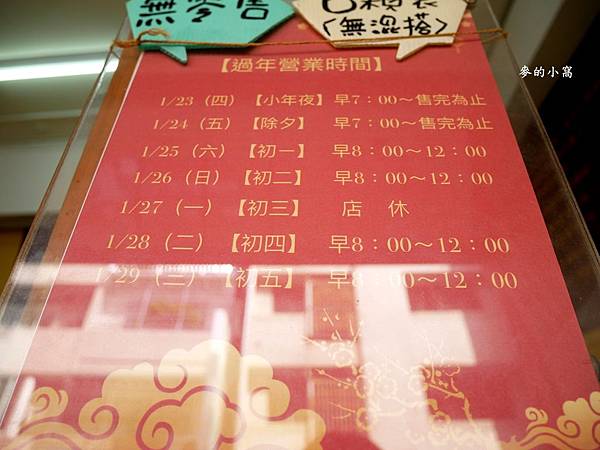 無零售
口粽裝
(無混搭)
麥的小窩
【過年營業時間】
1/23（四）【小年夜】早7：00～售完為止
1/24（五）【除夕】早7：00～售完為止
1/25（六）【初一】早8：00～12：00
1/26（日）【初二】早8：00～12：00
1/27（一）【初三】店 休
1/28（二）【初四】早8：00～12：00
1/29（三）【初五】早8：00～12：00